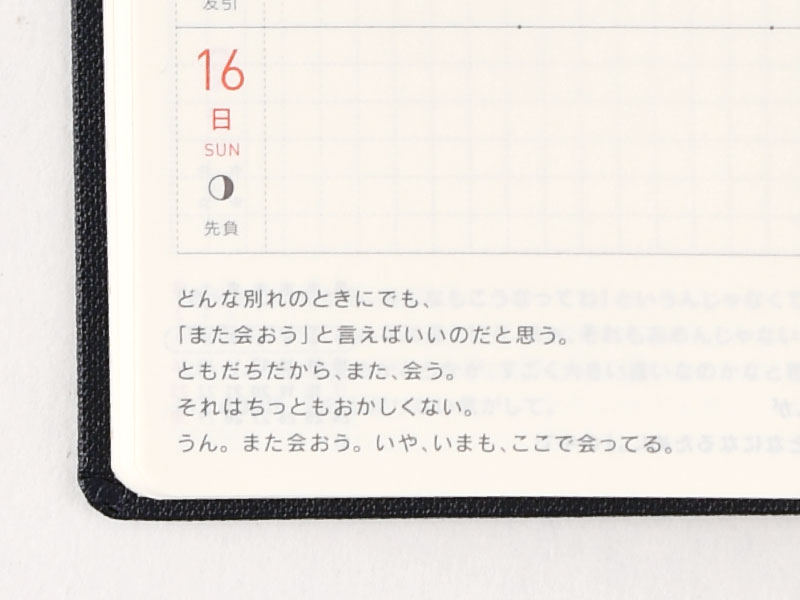 友引
16
日
SUN
先負
どんな別れのときにでも、
「また会おう」と言えばいいのだと思う。
ともだちだから、また、会う。
それはちっともおかしくない。
うん。また会おう。いや、いまも、ここで会ってる。